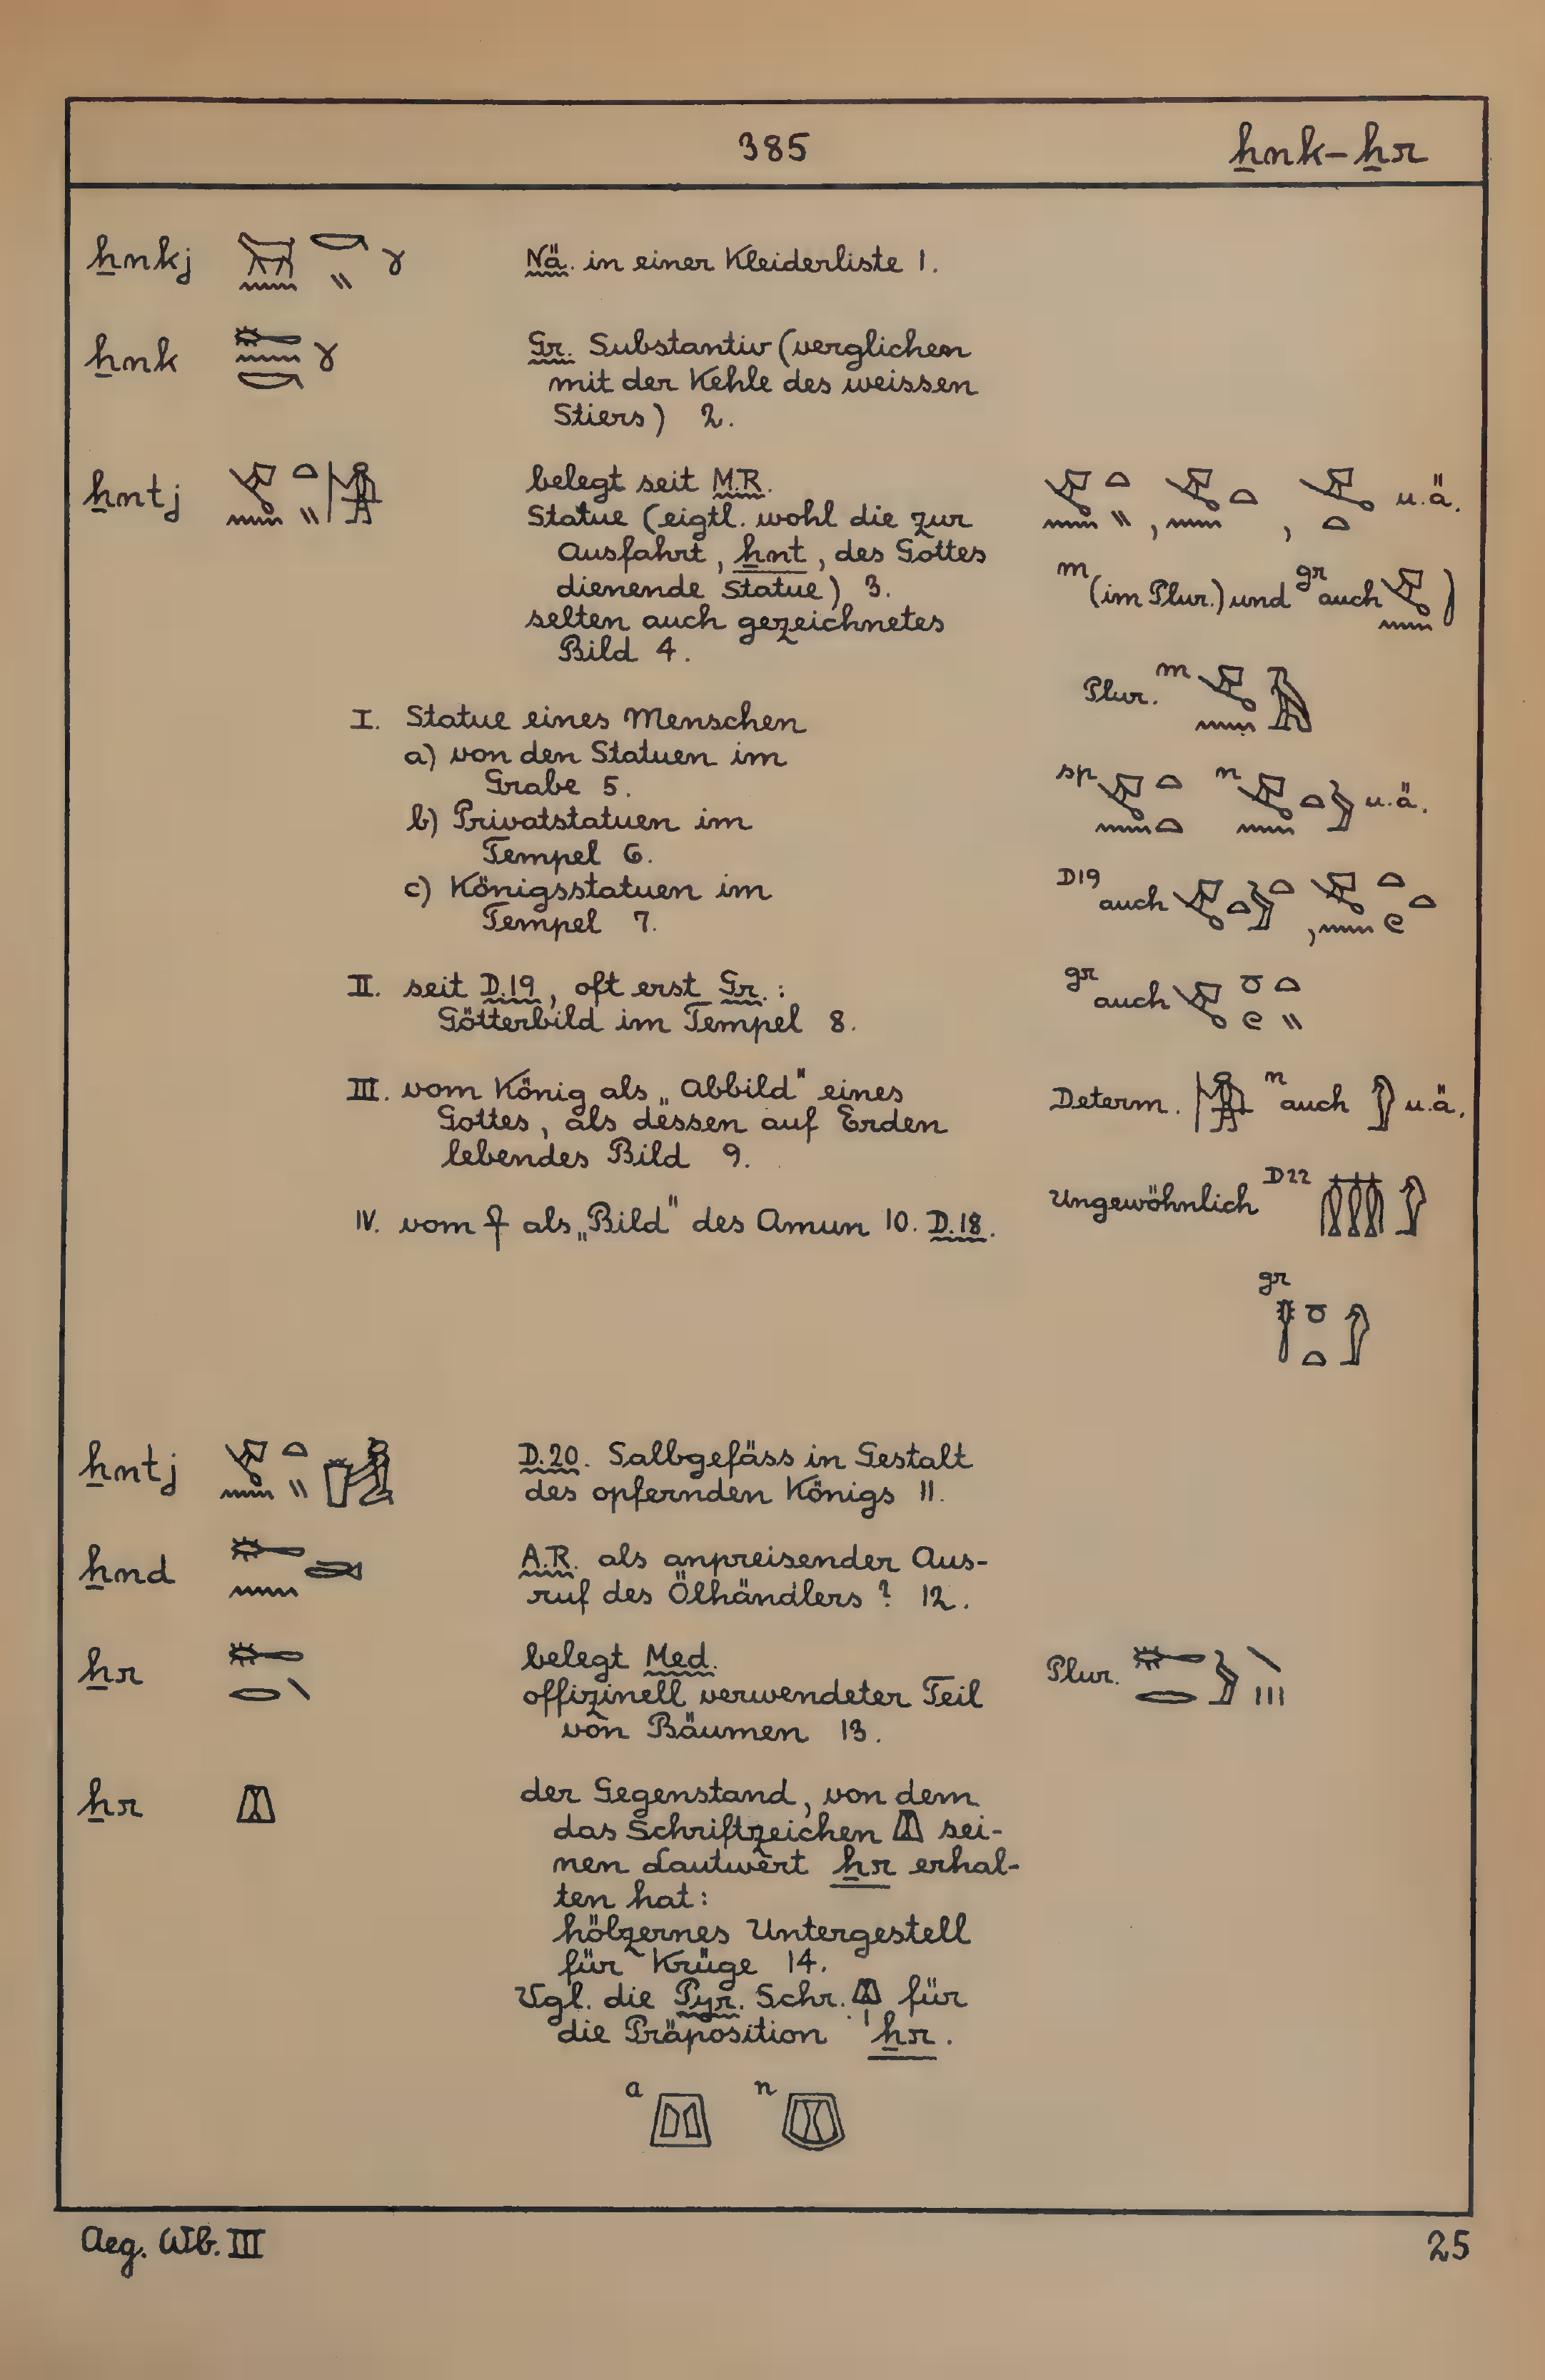 385 ẖnk-ẖr
ẖnkj Nä. in einer Kleiderliste 1.
ẖnk Gr. Substantiv (verglichen
mit der Kehle des weissen
Stiers) 2.
ẖntj belegt seit M.R.
Statue (eigtl. wohl die zur
Ausfahrt, ẖnt, des Gottes
dienende Statue) 3.
selten auch gezeichnetes
Bild 4.
I. Statue eines Menschen
a) von den Statuen im
Grabe 5.
b) Privatstatuen im
Tempel 6.
c) Königsstatuen im
Tempel 7.
II. seit D.19, oft erst Gr.:
Götterbild im Tempel 8.
III. vom König als „Abbild" eines
Gottes, als dessen auf Erden
lebendes Bild 9.
IV. vom als „Bild" des Amun 10. D.18.
, , u.ä.
m (im Plur.) und gr auch
Plur. m
sp n u.ä.
D19 auch ,
gr auch
Determ. n auch u.ä.
Ungewöhnlich D22
gr
ẖntj D.20. Salbgefäss in Gestalt
des opfernden Königs 11.
ẖnd A.R. als anpreisender Aus-
ruf des Ölhändlers ? 12.
ẖr belegt Med. Plur.
offizinell verwendeter Teil
von Bäumen 13.
ẖr der Gegenstand, von dem
das Schriftzeichen sei-
nen Lautwert ẖr erhal-
ten hat:
hölzernes Untergestell
für Krüge 14.
Vgl. die Pyr. Schr. für
die Präposition ẖr.
a n
Aeg. Wb. III 25